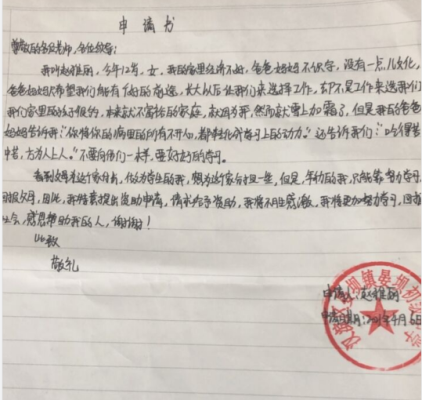 申请书
尊敬的各位老师、各位领导：
我叫赵雅丽，今年12岁，女，我的家里经济不好，爸爸妈妈不识字，没有一点儿文化，
爸爸妈妈只希望我们能有个好的前途，长大以后让我们来选择工作，而不是工作来选我们
我们家里的 本来就不富裕的家庭， 然而就雪上加霜了，但是我的爸爸
妈妈告诉我："你将你的 里的所有不开心，都转化成学习上的动力。"还告诉我们："吃得苦
中苦，方为人上人。"不要向他们一样，要好好的学习。
看到妈妈为这个家付出，做为学生的我，想为这个家分担一些，但是，年幼的我，只能靠努力学习，
回报父母，因此，我特意提出资助申请，请求给予资助，我将不甚感激，我将更加努力学习，回报
社会，感恩帮助我的人，谢谢！
此致
敬礼
申请人：赵雅丽
申请日期：
坝镇晏坝初